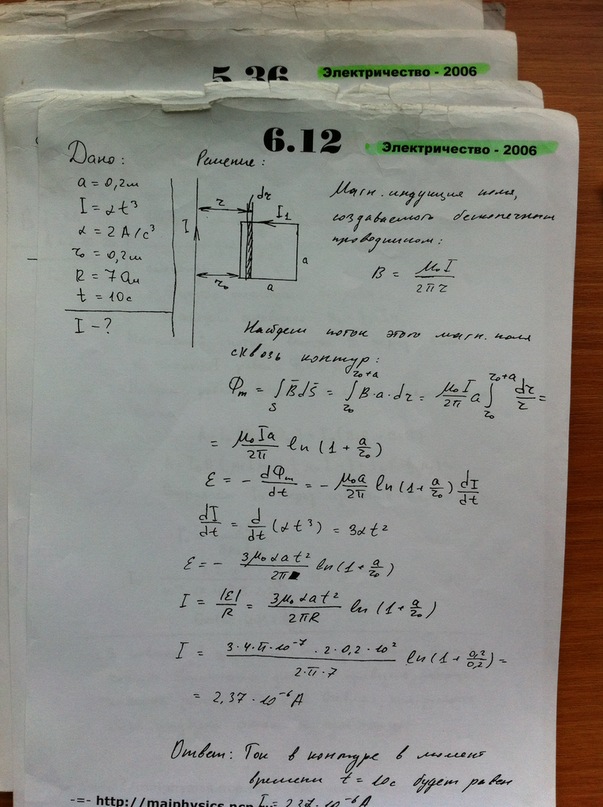 5.36 Электричество - 2006
6.12 Электричество - 2006
Дано: Решение:
a = 0,2м
I = αt³
α = 2 А/с³
r₀ = 0,2м
R = 7 Ом
t = 10с
I - ?
I r dr I₁ r₀ a a
Магн. индукция поля,
создаваемого бесконечным
проводником:
B = μ₀I / 2πr
Найдем поток этого магн. поля
сквозь контур:
Φₘ = ∫_S B̄dS̄ = ∫_{r₀}^{r₀+a} B·a·dr = μ₀I/2π a ∫_{r₀}^{r₀+a} dr/r =
= μ₀Ia/2π ln(1 + a/r₀)
Ɛ = - dΦₘ/dt = - μ₀a/2π ln(1 + a/r₀) dI/dt
dI/dt = d/dt (αt³) = 3αt²
Ɛ = - 3μ₀αat²/2π ln(1 + a/r₀)
I = |Ɛ|/R = 3μ₀αat²/2πR ln(1 + a/r₀)
I = 3·4·π·10⁻⁷·2·0,2·10²/2·π·7 ln(1 + 0,2/0,2) =
= 2,37·10⁻⁶А
Ответ: Ток в контуре в момент
времени t = 10с будет равен
I = 2,37·10⁻⁶А
-=- http://maiphysics